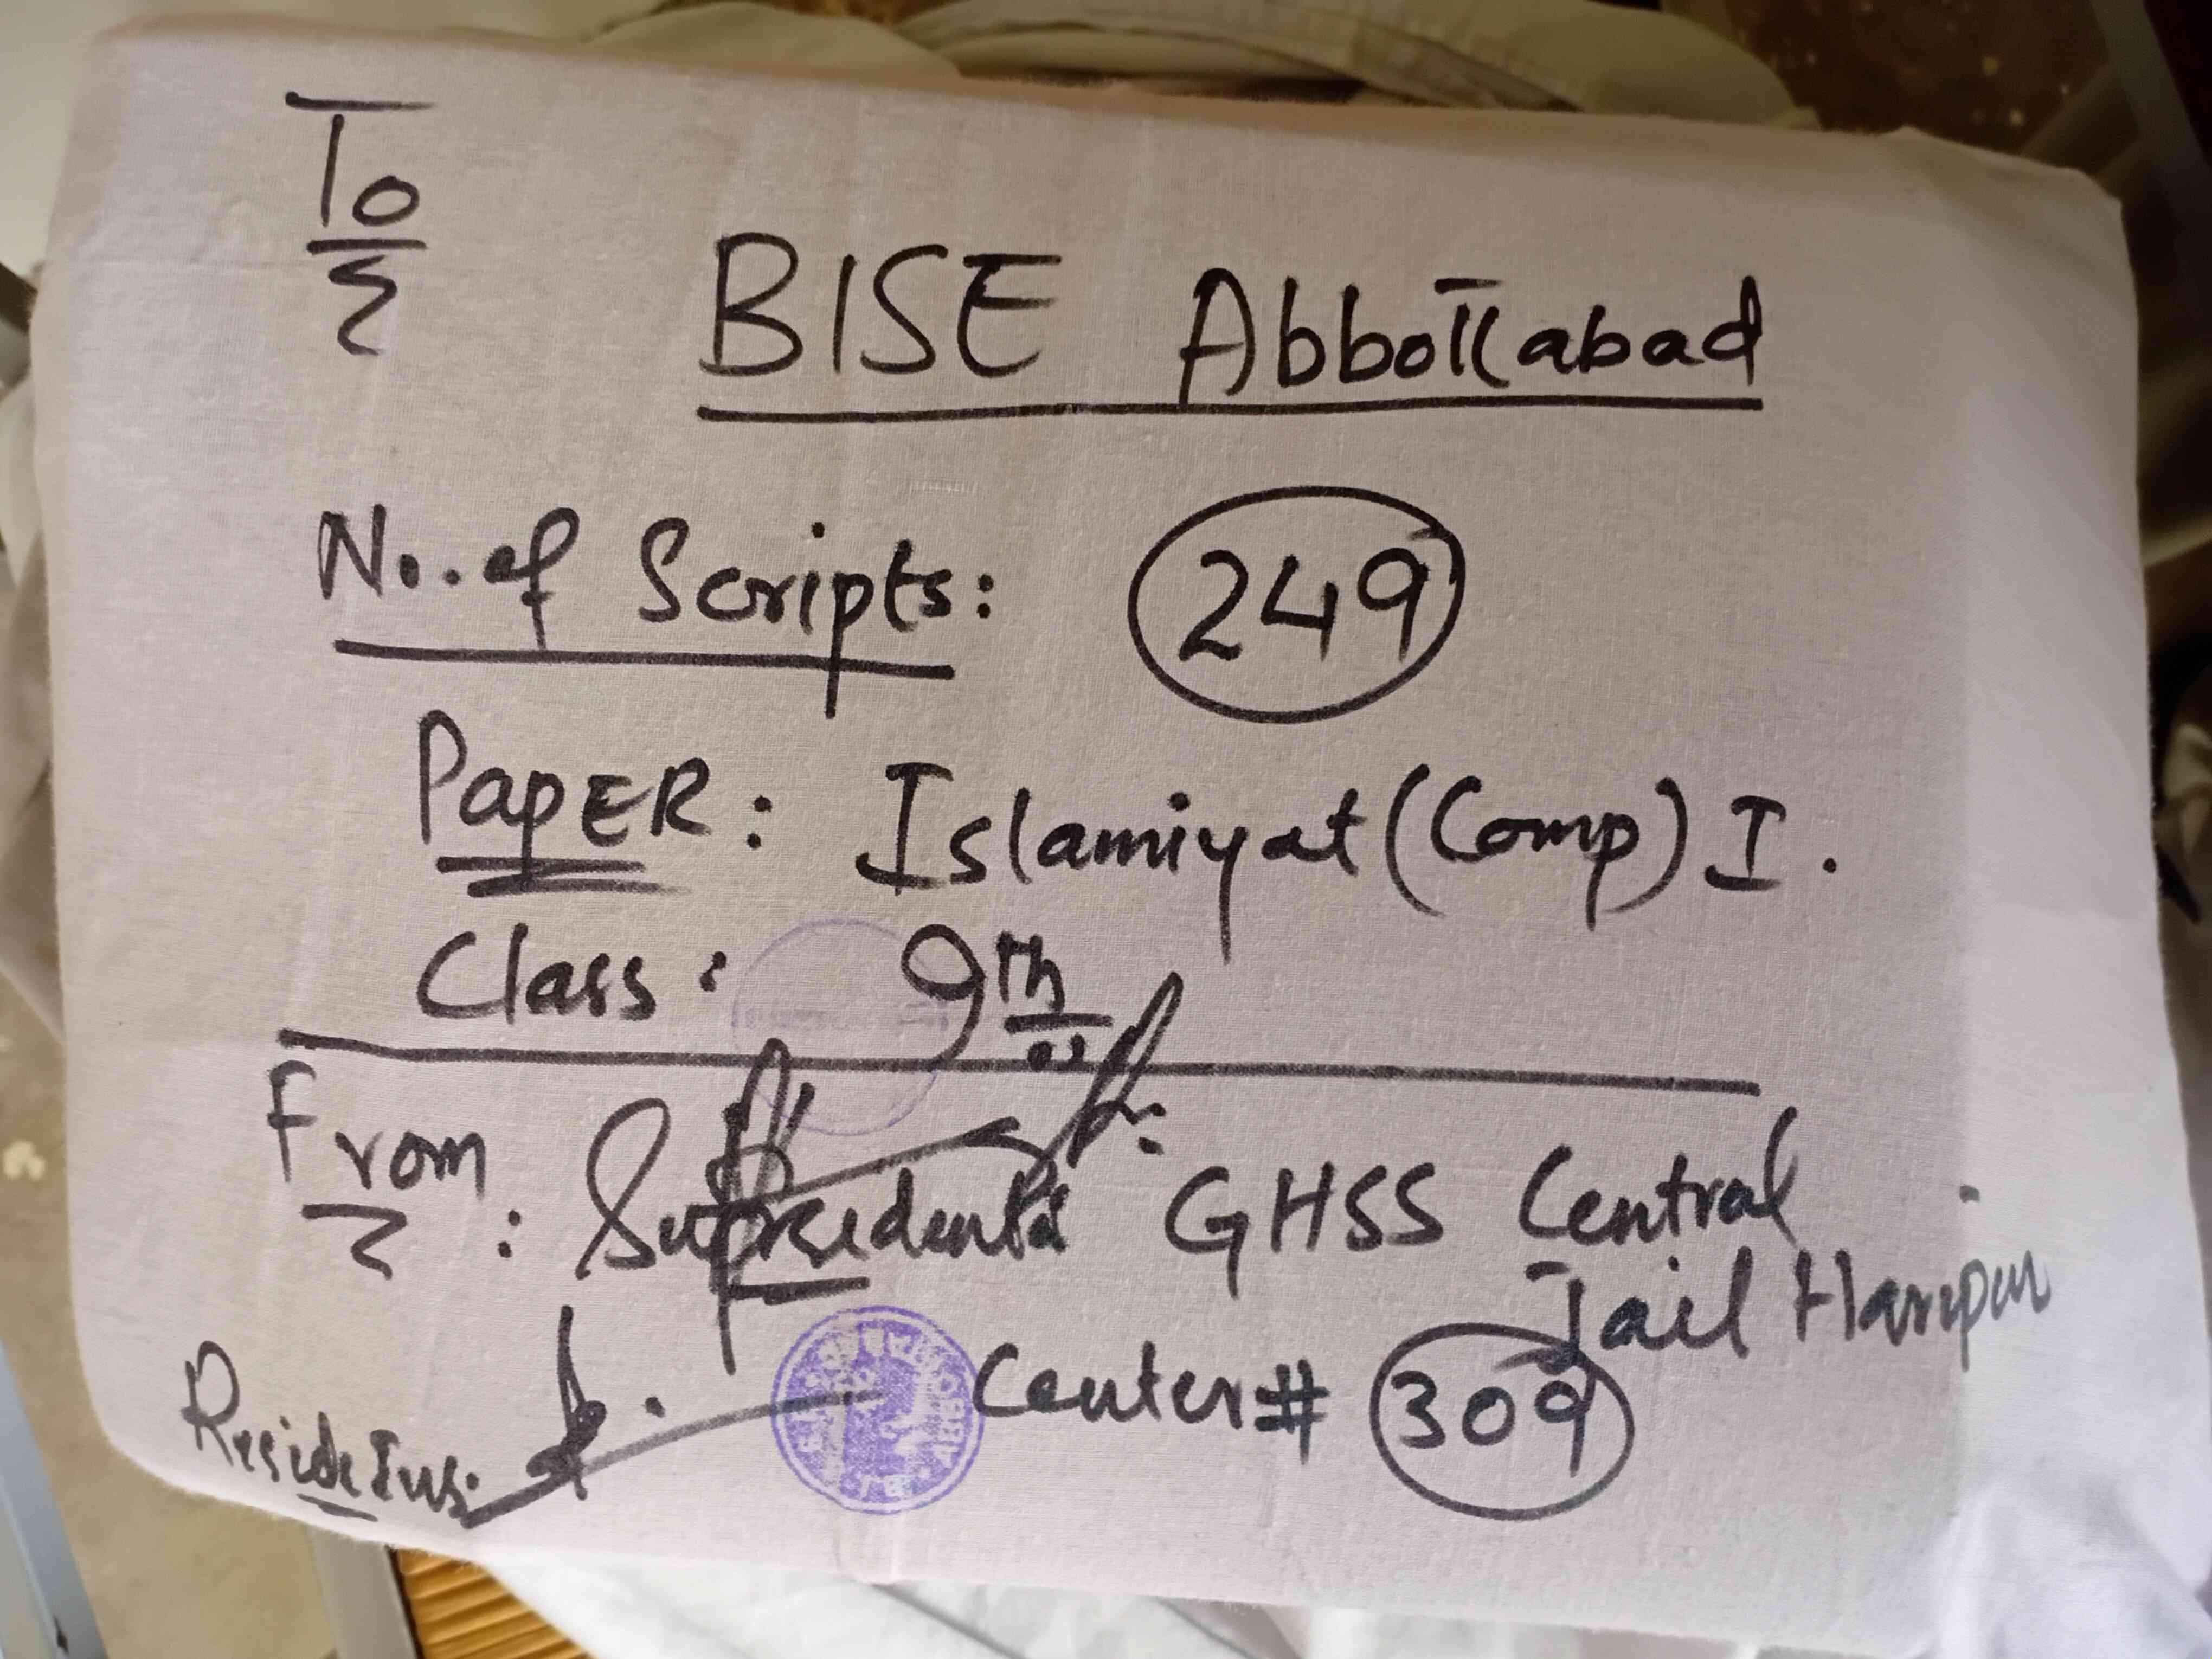 To
BISE Abbottabad
No. of Scripts: 249
PAPER: Islamiyat (Comp) I.
Class: 9th
From: GHSS Central
Jail Haripur
Center # 309
Reside Ins.